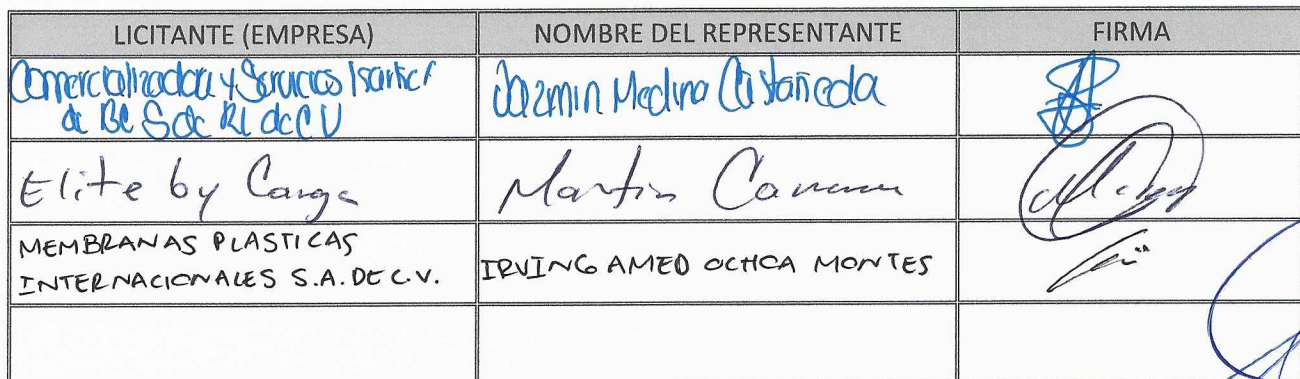 LICITANTE (EMPRESA) NOMBRE DEL REPRESENTANTE FIRMA
Comercializadora y Servicios
de BC S de RL de CV
Jazmin Medina Castañeda
Elite by Canga
Martin
MEMBRANAS PLASTICAS
INTERNACIONALES S.A. DE C.V.
IRVING AMED OCHOA MONTES